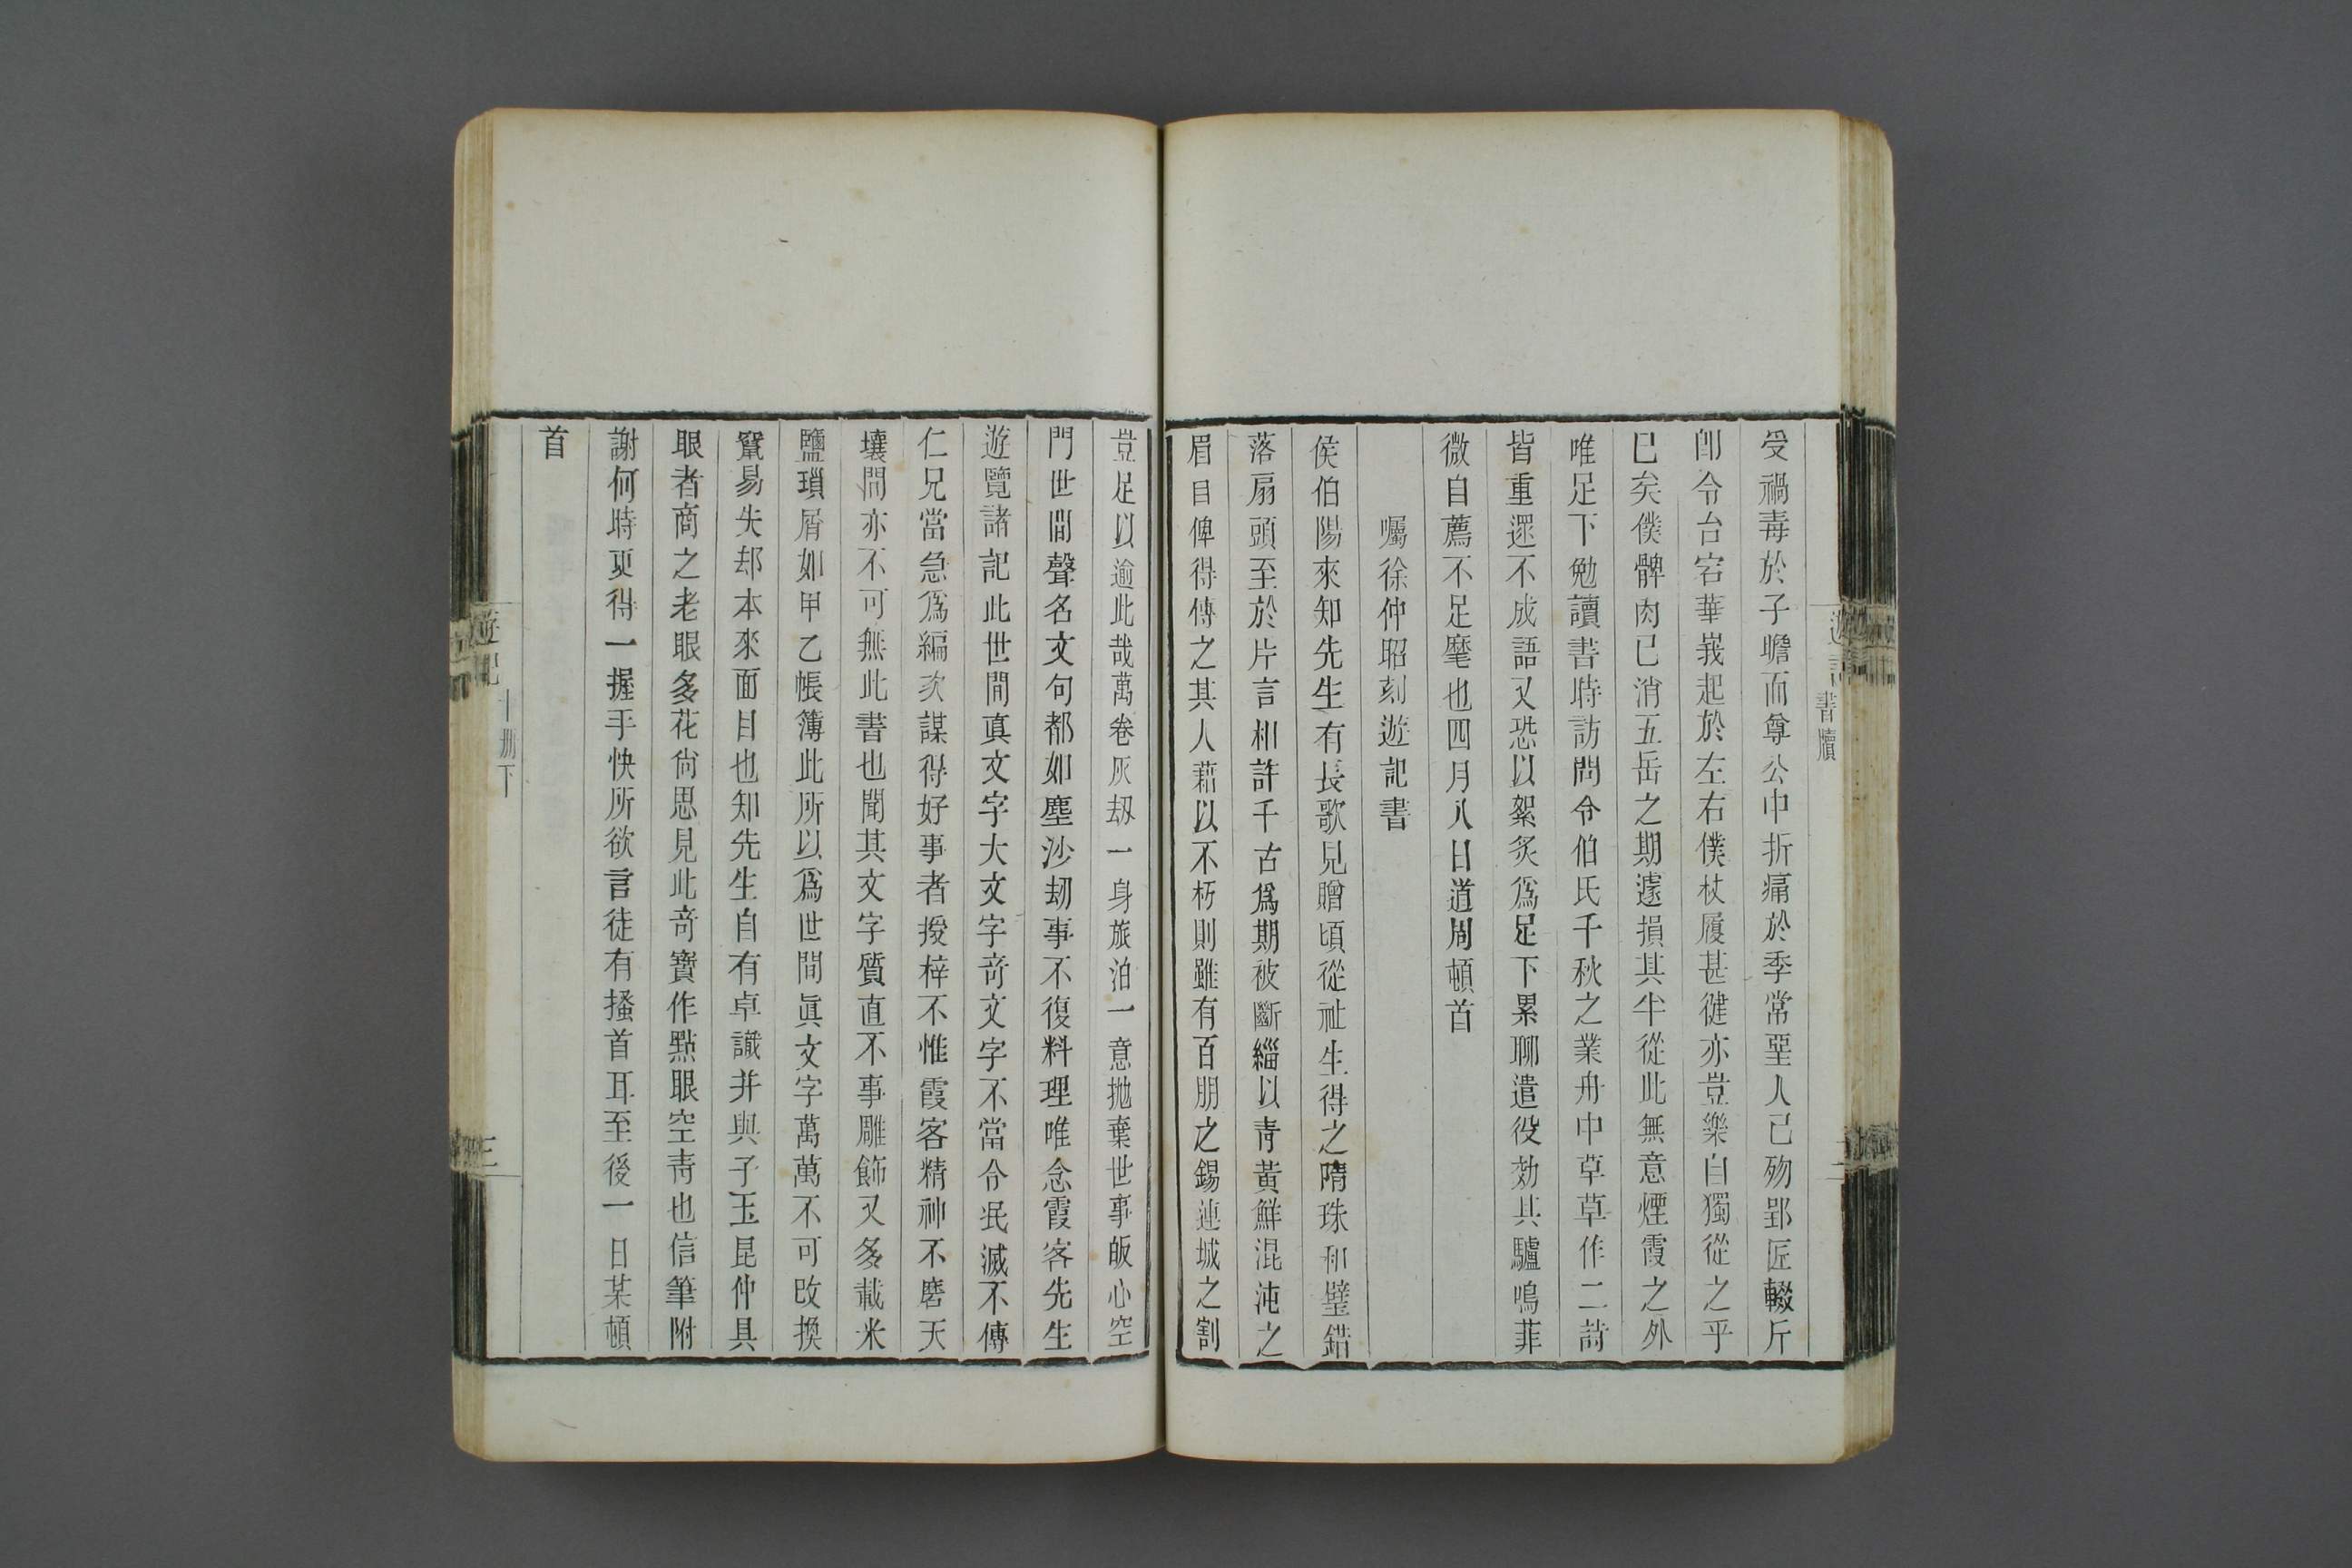 受禍毒於子瞻而尊公中折痛於季常堊人已歿郢匠輟斤
卽令台宕華峩起於左右僕杖履甚徤亦豈樂自獨從之乎
已矣僕髀肉已消五岳之期遽損其半從此無意煙霞之外
唯足下勉讀書時訪問令伯氏千秋之業舟中草草作二詩
皆重遝不成語又恐以絮炙爲足下累聊遣役効其驢鳴菲
微自薦不足麾也四月八日道周頓首
囑徐仲昭刻遊記書
侯伯陽來知先生有長歌見贈頃從祉生得之隋珠和璧錯
落扇頭至於片言相許千古爲期被斷緇以靑黃鮮混沌之
眉目俾得傳之其人藉以不朽則雖有百朋之錫連城之割
豈足以逾此哉萬卷灰刼一身旅泊一意拋棄世事皈心空
門世間聲名文句都如塵沙刼事不復料理唯念霞客先生
遊覽諸記此世間眞文字大文字奇文字不當令泯滅不傳
仁兄當急爲編次謀得好事者授梓不惟霞客精神不磨天
壤間亦不可無此書也聞其文字質直不事雕飾又多載米
鹽瑣屑如甲乙帳簿此所以爲世間眞文字萬萬不可改換
竄易失却本來面目也知先生自有卓識并與子玉昆仲具
眼者商之老眼多花尙思見此奇寶作點眼空靑也信筆附
謝何時更得一握手快所欲言徒有搔首耳至後一日某頓
首
遊記
書牘
二
遊記
十册下
三